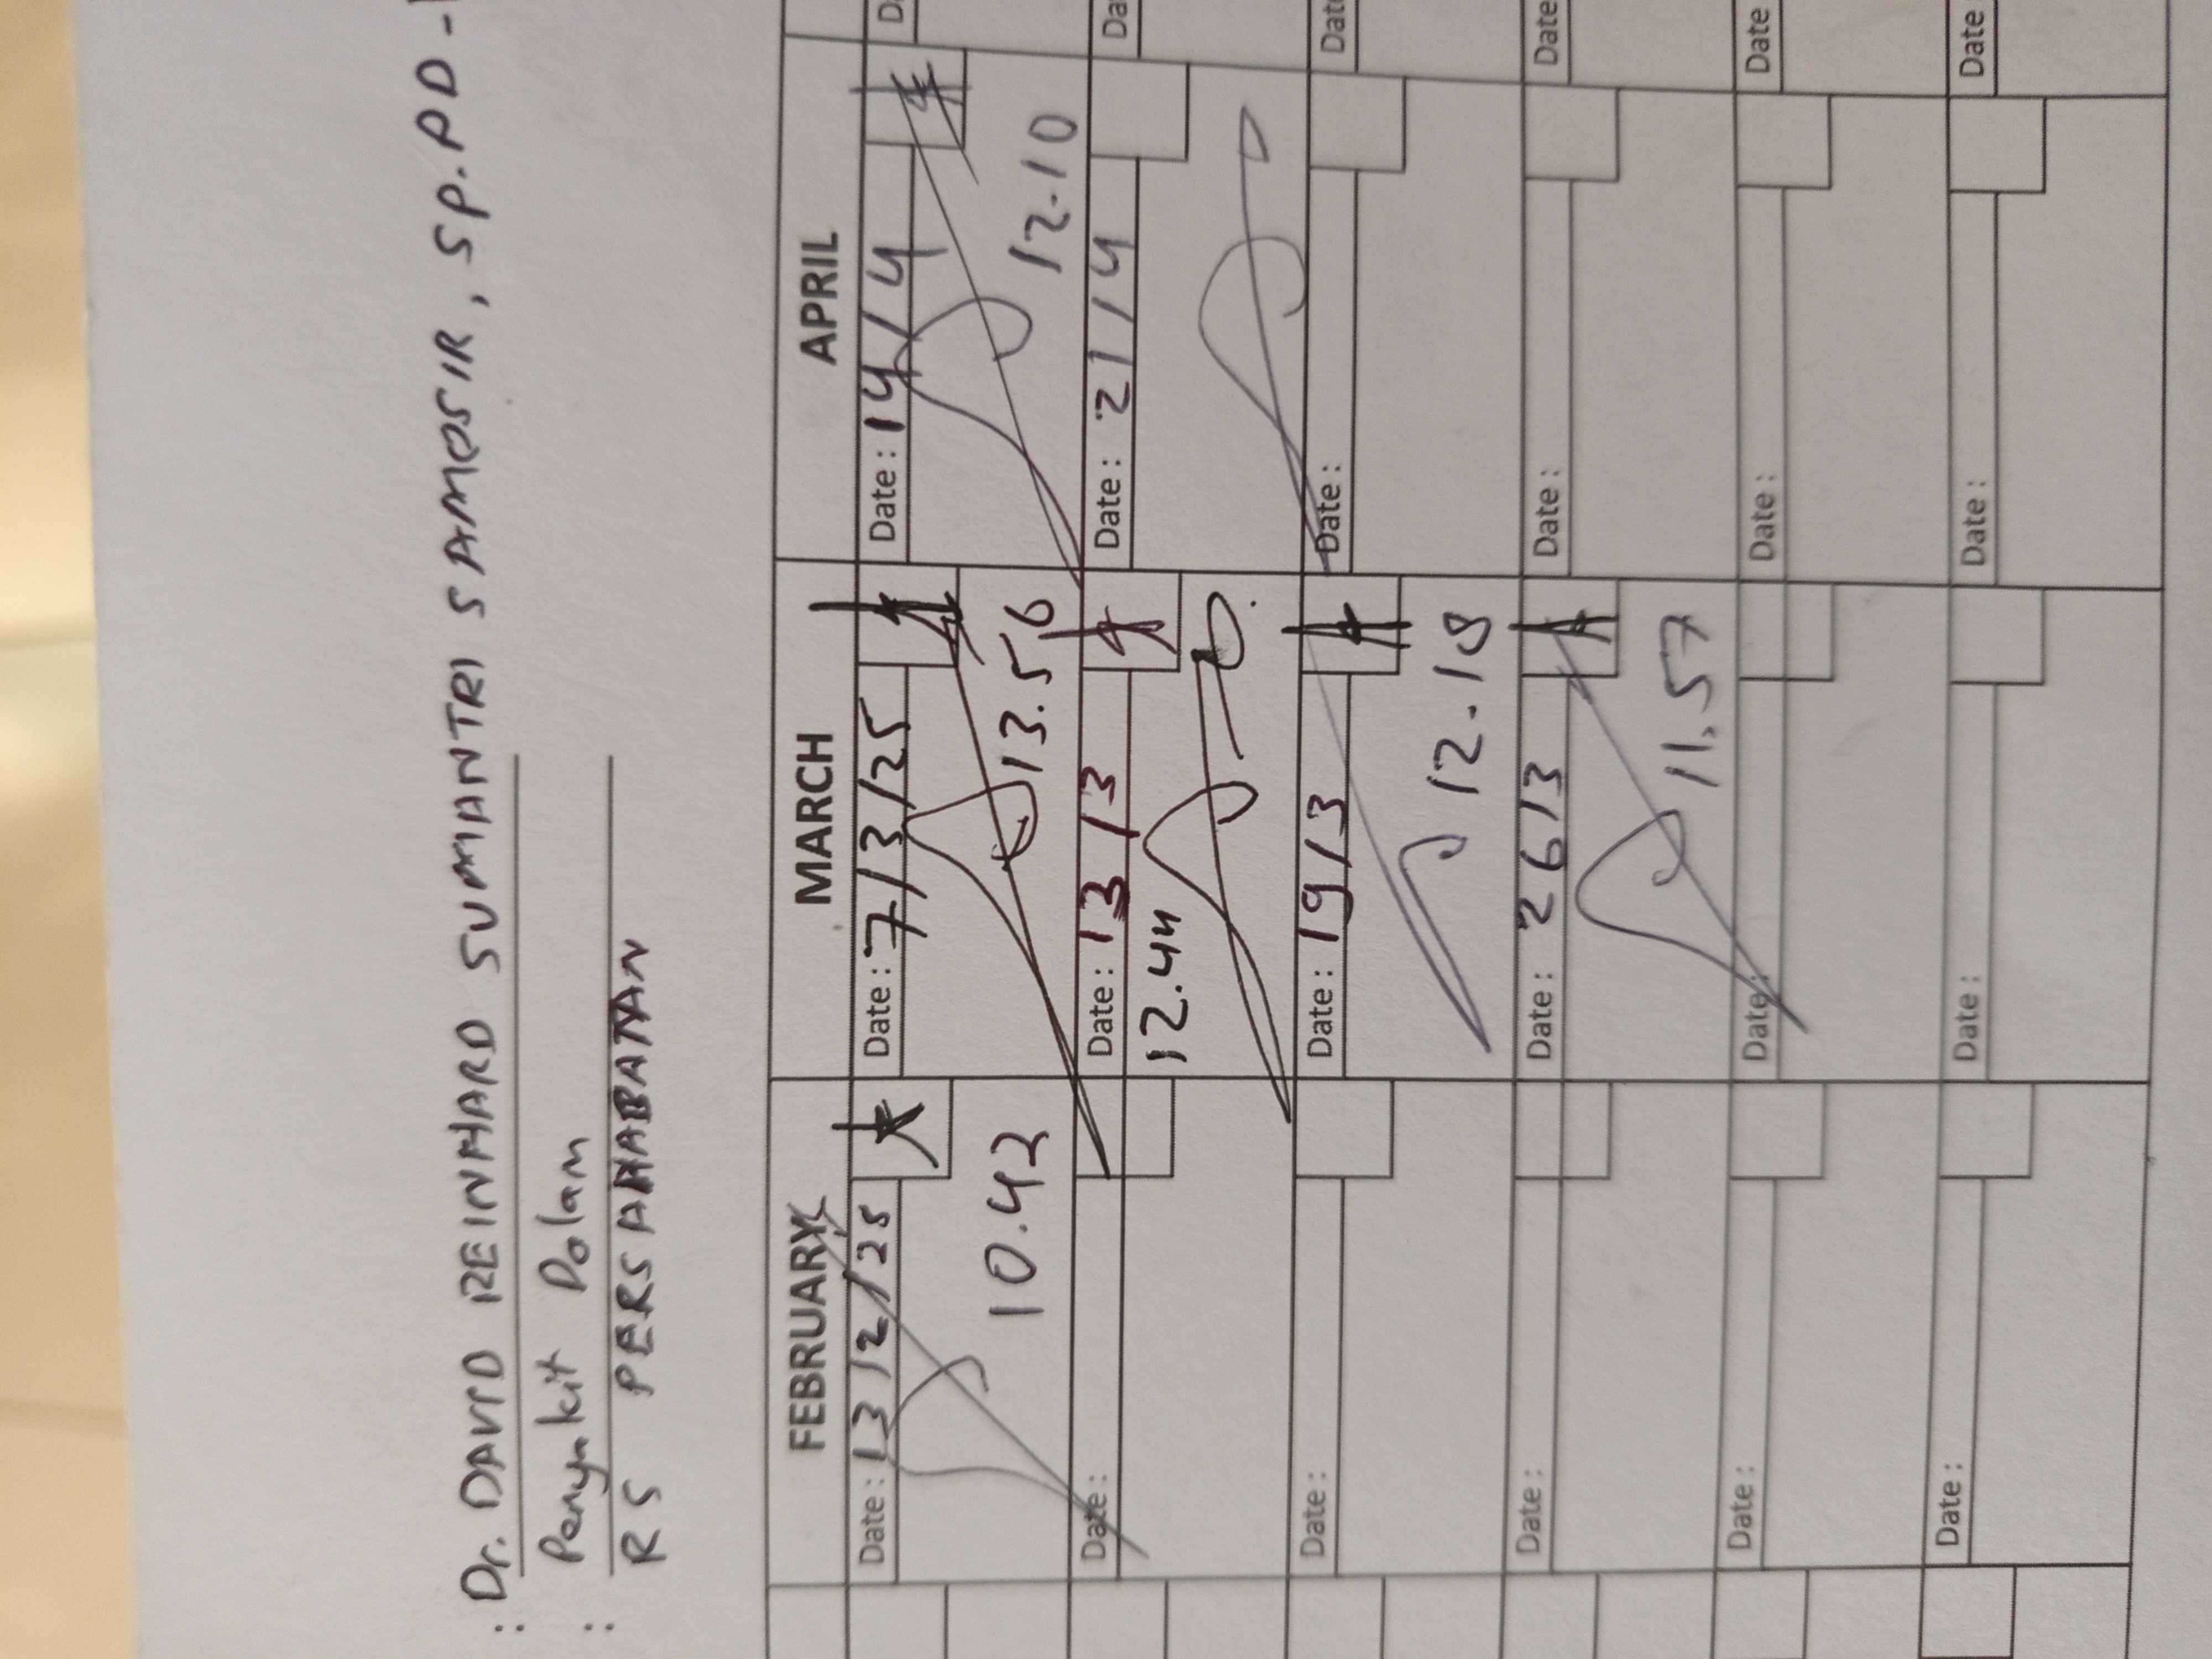 : Dr. DAVID REINHARD SUMANTRI SAMOSIR, SP.PD -
: Penyakit Dalam
RS PERSAHABATAN
FEBRUARY MARCH APRIL
Date : 13/2/25 Date : 7/3/25 Date : 14/4
10.42 13.56 12.10
Date : Date : 13/3 Date : 21/4
12.44
Date : Date : 19/3 Date :
12.18
Date : Date : 26/3 Date : Date
11.57
Date : Date : Date : Date
Date : Date : Date : Date